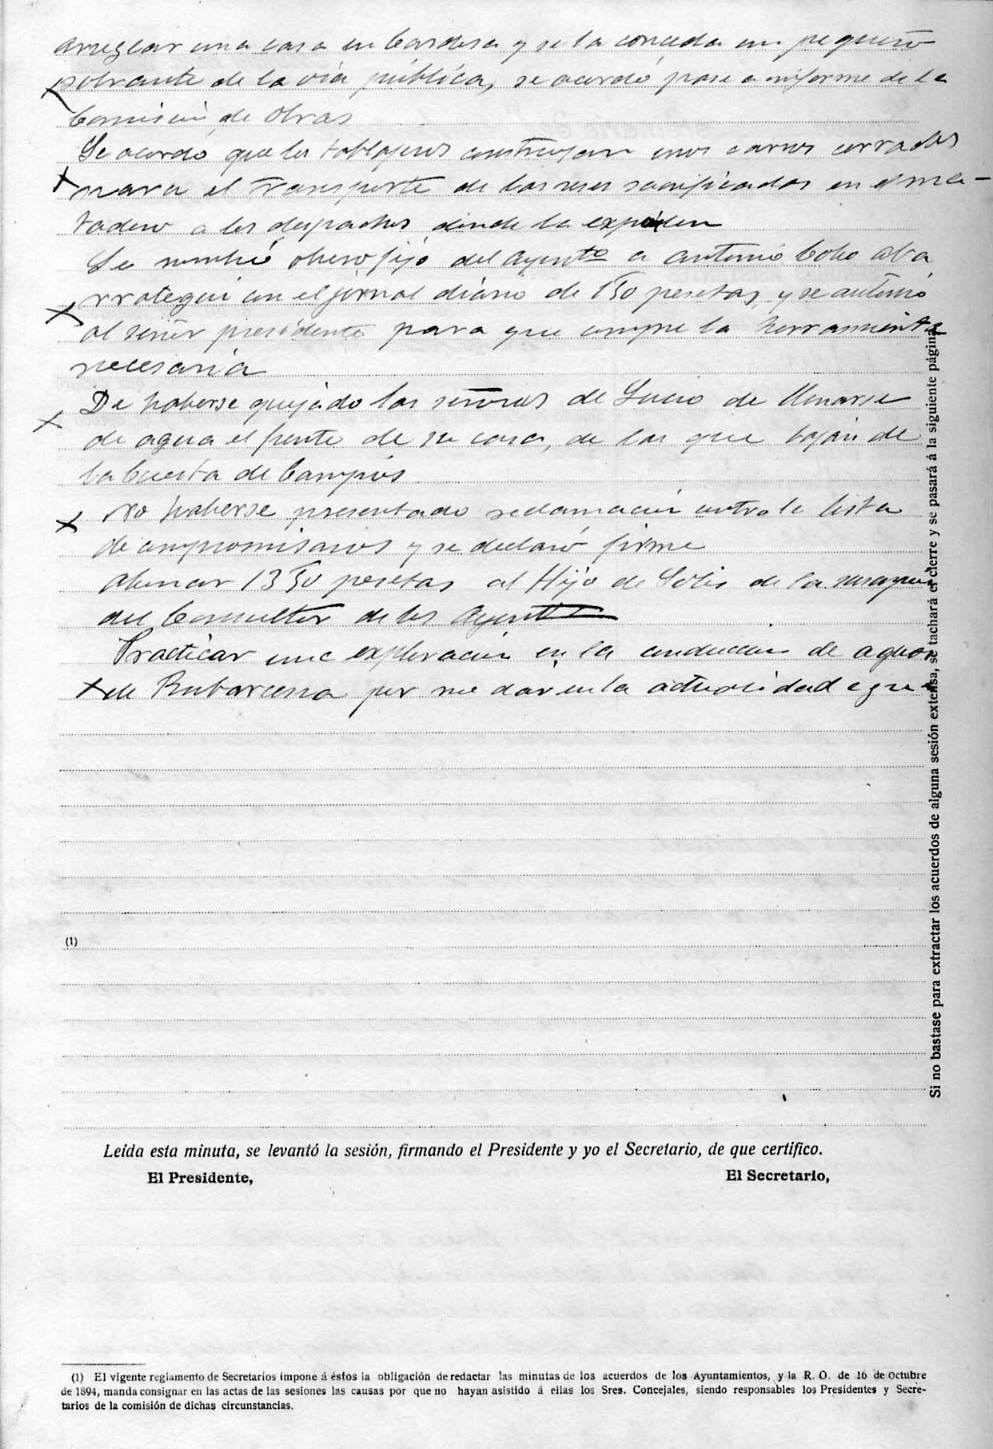 arreglar una casa en Cardosa y se la conceda un pequeño
sobrante de la via pública, se acordó pase a informe de la
Comisión de Obras
Se acordó que los tablajeros construyan unos carros cerrados
para el transporte de las reses sacrificadas en el ma-
tadero a los despachos donde la expenden
Se nombró obrero fijo del Aynto a Antonio Cobo
con el jornal diario de 1 50 pesetas y se autorizó
al señor presidente para que compre la herramienta
necesaria
De haberse quejado las señoras de Lucio de llenarse
de agua el frente de su casa, de las que bajan de
la Cuesta de Campíos
No haberse presentado reclamación contra la lista
de compromisarios y se declaró firme
Abonar 13 50 pesetas al Hijo de Solis de la
del Consultor de los Aynt
Practicar una exploración en la conducción de aguas
de Rubarcena por no dar en la actualidad agua
(1)
Si no bastase para extractar los acuerdos de alguna sesión extensa, se tachará el cierre y se pasará á la siguiente página.
Leída esta minuta, se levantó la sesión, firmando el Presidente y yo el Secretario, de que certifico.
El Presidente, El Secretario,
(1) El vigente reglamento de Secretarios impone á éstos la obligación de redactar las minutas de los acuerdos de los Ayuntamientos, y la R. O. de 16 de Octubre
de 1894, manda consignar en las actas de las sesiones las causas por que no hayan asistido á ellas los Sres. Concejales, siendo responsables los Presidentes y Secre-
tarios de la comisión de dichas circunstancias.